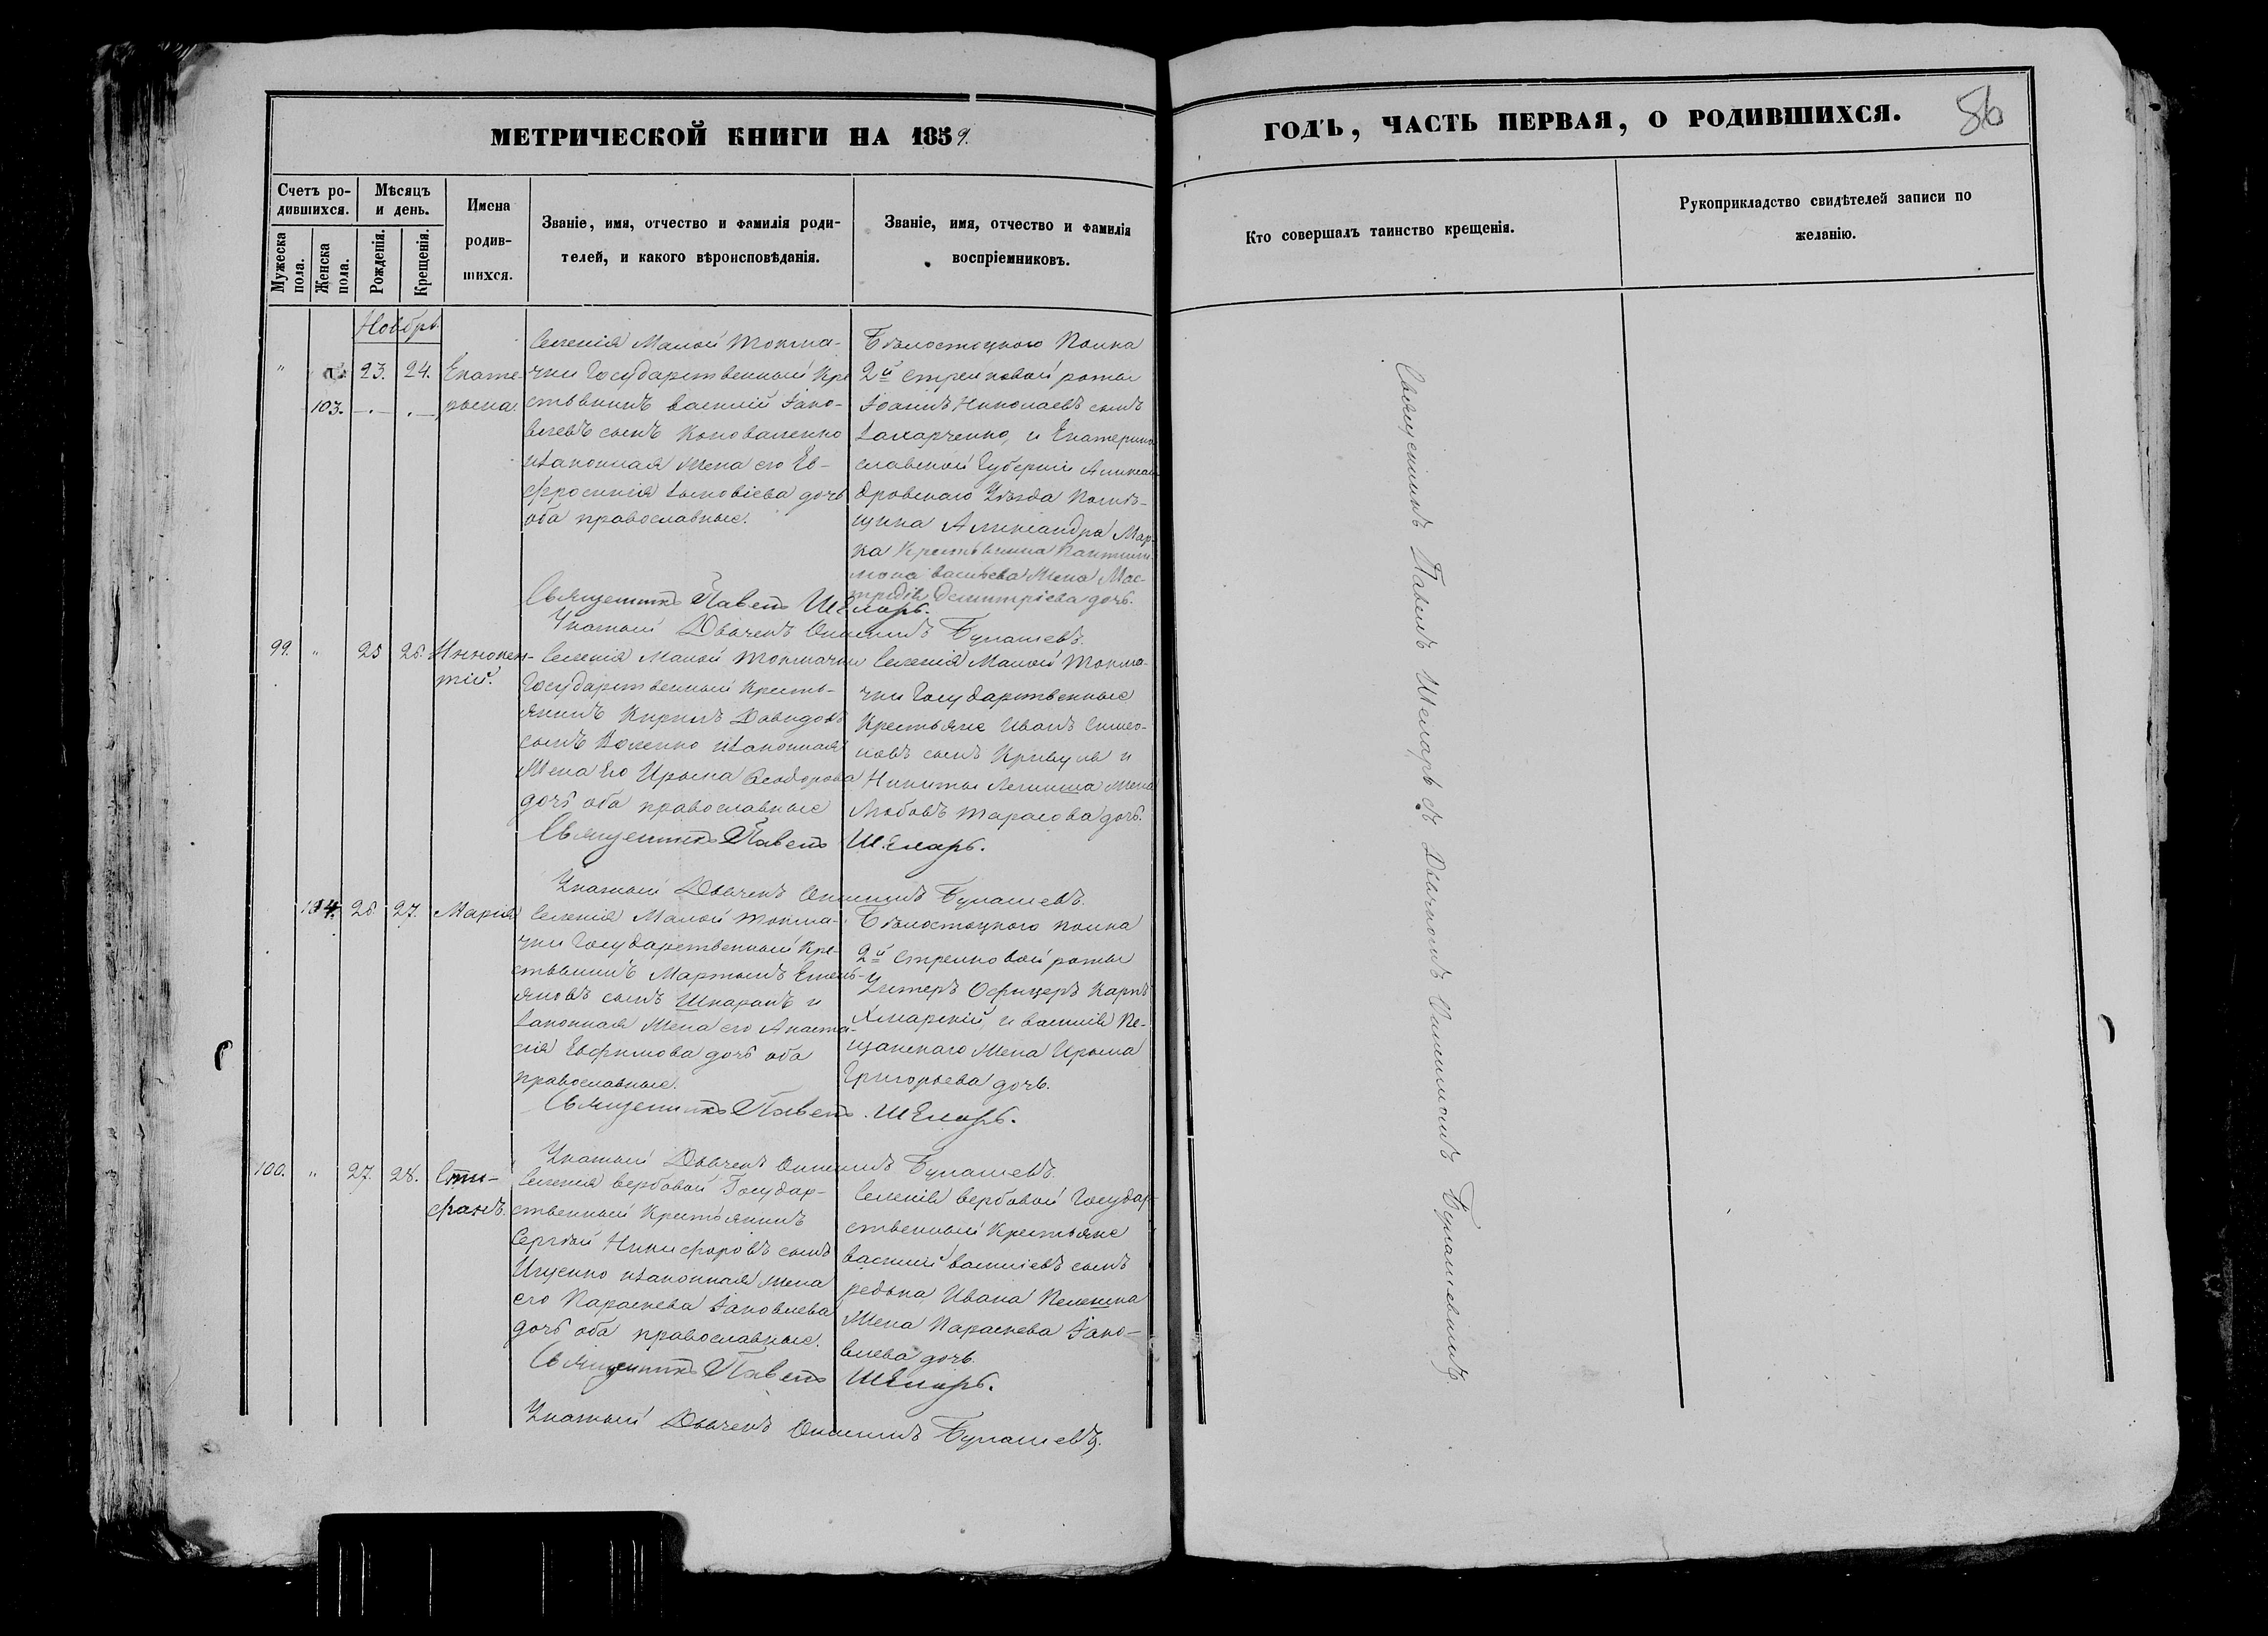 МЕТРИЧЕСКОЙ КНИГИ НА 1859.
ГОДЪ, ЧАСТЬ ПЕРВАЯ, О РОДИВШИХСЯ.
56
Счетъ ро-
дившихся.
Мѣсяцъ
и день.
Имена
родив-
шихся.
Мужеска
пола.
Женска
пола.
Рожденія.
Крещенія.
Званіе, имя, отчество и фамилія роди-
телей, и какого вѣроисповѣданія.
Званіе, имя, отчество и фамилія
воспріемниковъ.
Кто совершалъ таинство крещенія.
Рукоприкладство свидѣтелей записи по
желанію.
Ноябрь.
"
103.
23.
24.
Екате-
рина.
Селенія Малой Токма-
чки Государственный Кре
стьянинъ Василій Яко-
влевъ сынъ Коноваленко
и законная жена его Ев-
фросинія дочь
оба православные.
Бѣлостоцкаго Полка
2й стрелковой роты
Іоаннъ Николаевъ сынъ
Захарченко, и Екатерино
славской Губерніи Алексан
дровскаго Уѣзда Помѣ-
щика Александра Мар-
ка Крестьянина Пантелей
мона Васильева жена
Димитріева дочь.
Священникъ Павелъ Шкларь.
Указный Дьячекъ Онисимъ Булашевъ.
99.
"
25
26.
Иннокен-
тій.
Селенія Малой Токмачки
Государственный Кресть-
янинъ Кирилъ Давидовъ
сынъ и законная
жена его Ирина Ѳеодорова
дочь оба православные
Селенія Малой Токма-
чки Государственные
Крестьяне Иванъ Симео-
новъ сынъ Кривуля и
Никиты жена
Любовь Тарасова дочь.
Священникъ Павелъ Шкларь.
Указный Дьячекъ Онисимъ Булашевъ.
104.
26.
27.
Марія
Селенія Малой Токма-
чки Государственный Кре-
стьянинъ Мартынъ Емель-
яновъ сынъ Шкарапъ и
законная жена его Анаста-
сія Евфимова дочь оба
православные.
Бѣлостоцкого полка
2й стрелковой роты
Унтеръ Офицеръ Карпъ
Хмарскій, и Василія Пе-
щанскаго жена Ирина
Григорьева дочь.
Священникъ Павелъ Шкларь.
Указный Дьячекъ Онисимъ Булашевъ.
100.
"
27.
28.
Сти-
фанъ.
Селенія Вербовой Государ-
ственный Крестьянинъ
Сергѣй Никифоровъ сынъ
Ищенко и законная жена
его Параскева Яковлева
дочь оба православные.
Селенія Вербовой Государ-
ственный Крестьяне
Василій Василіевъ сынъ
Редька Ивана
жена Параскева Яко-
влева дочь.
Священникъ Павелъ Шкларь.
Указный Дьячекъ Онисимъ Булашевъ.
Священникъ Павелъ Шкларь съ Дьячкомъ Онисимомъ Булашевымъ.